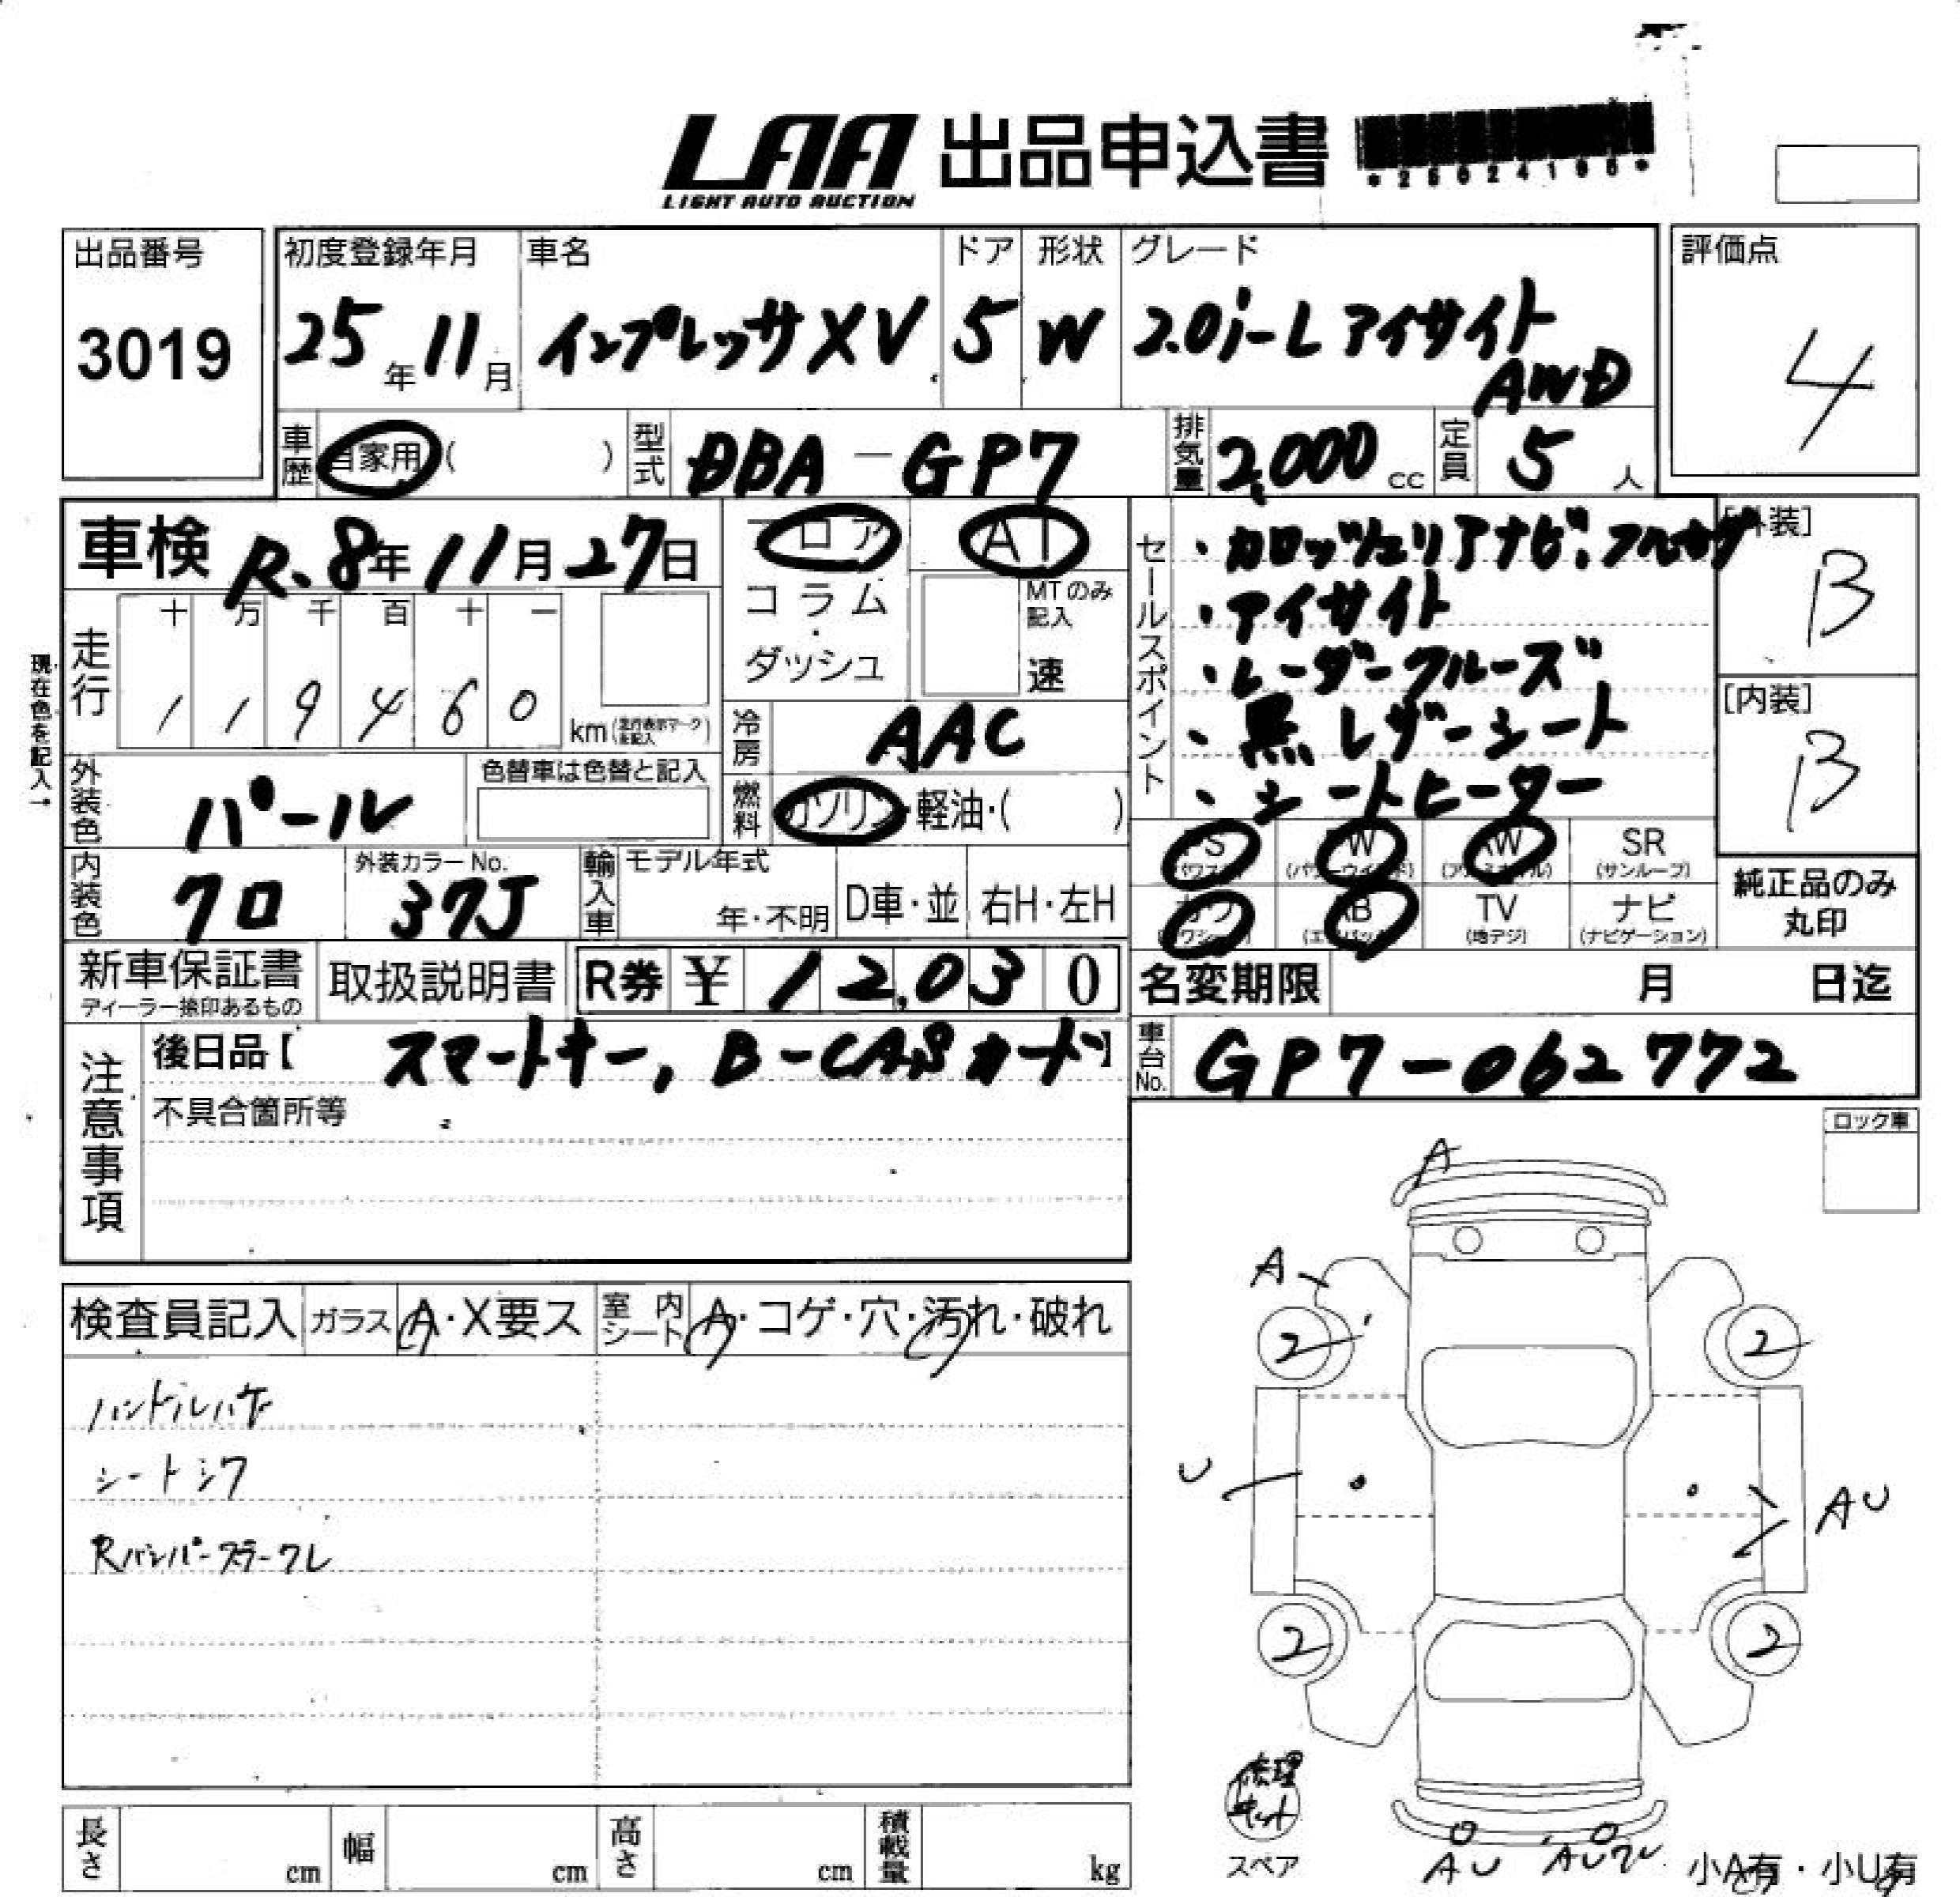 LAA 出品申込書
LIGHT AUTO AUCTION
*25024195*
出品番号
3019
初度登録年月
25年11月
車名
インプレッサXV
ドア
5
形状
W
グレード
2.0i-L アイサイト
AWD
評価点
4
車歴 自家用 ( )
型式 DBA-GP7
排気量 2,000 cc
定員 5 人
車検 R.8年11月27日
フロア
コラム・
ダッシュ
AT
MTのみ記入
速
セールスポイント
・カロッツェリアナビ、フルセグ
・アイサイト
・レーダークルーズ
・黒レザーシート
・シートヒーター
[外装]
B
[内装]
B
現在色を記入→
走行
十 万 千 百 十 一
1 1 9 4 6 0
km (走行表示マークを記入)
冷房 AAC
外装色 パール
色替車は色替と記入
燃料 ガソリン・軽油・( )
PS (パワステ)
PW (パワーウインド)
AW (アルミホイル)
SR (サンルーフ)
カワ (カワシート)
AB (エアバッグ)
TV (地デジ)
ナビ (ナビゲーション)
純正品のみ
丸印
内装色 クロ
外装カラーNo. 37J
輸入車
モデル年式
年・不明
D車・並
右H・左H
新車保証書
ディーラー捺印あるもの
取扱説明書
R券 ¥ 12,030
名変期限 月 日迄
注意事項
後日品【 スマートキー, B-CASカード】
不具合箇所等
車台No. GP7-062772
ロック車
検査員記入
ガラス A・X要ス
室内シート A・コゲ・穴・汚れ・破れ
ハンドルハゲ
シートシワ
Rバンパーステークレ
A
A
2
2
U
AU
2
2
修理
キット
スペア
AU
AUワレ
小A有・小U有
長さ cm
幅 cm
高さ cm
積載量 kg